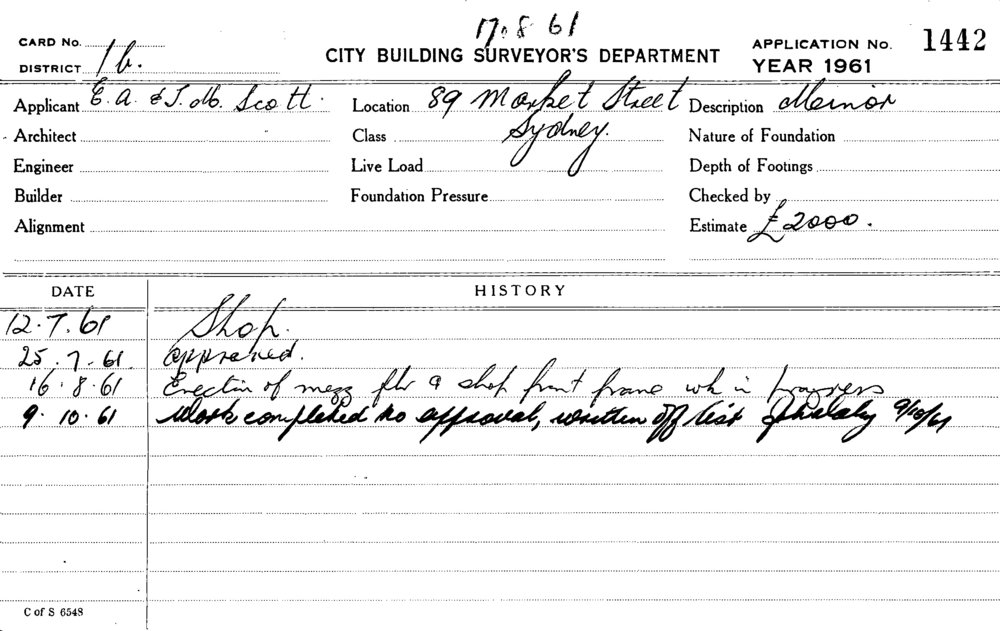 17.8.61
CARD No.
CITY BUILDING SURVEYOR'S DEPARTMENT
APPLICATION No. 1442
DISTRICT 1b.
YEAR 1961
Applicant E. A. & J. M. Scott. Location 89 Market Street Description Minor
Architect Class Sydney. Nature of Foundation
Engineer Live Load Depth of Footings
Builder Foundation Pressure Checked by
Alignment Estimate £2000.
DATE HISTORY
12.7.61 Shop.
25.7.61 approved.
16.8.61 Erection of mezz flr & shop front frame wk in progress
9.10.61 Work completed no approval, written off list 9/10/61
C of S 6548